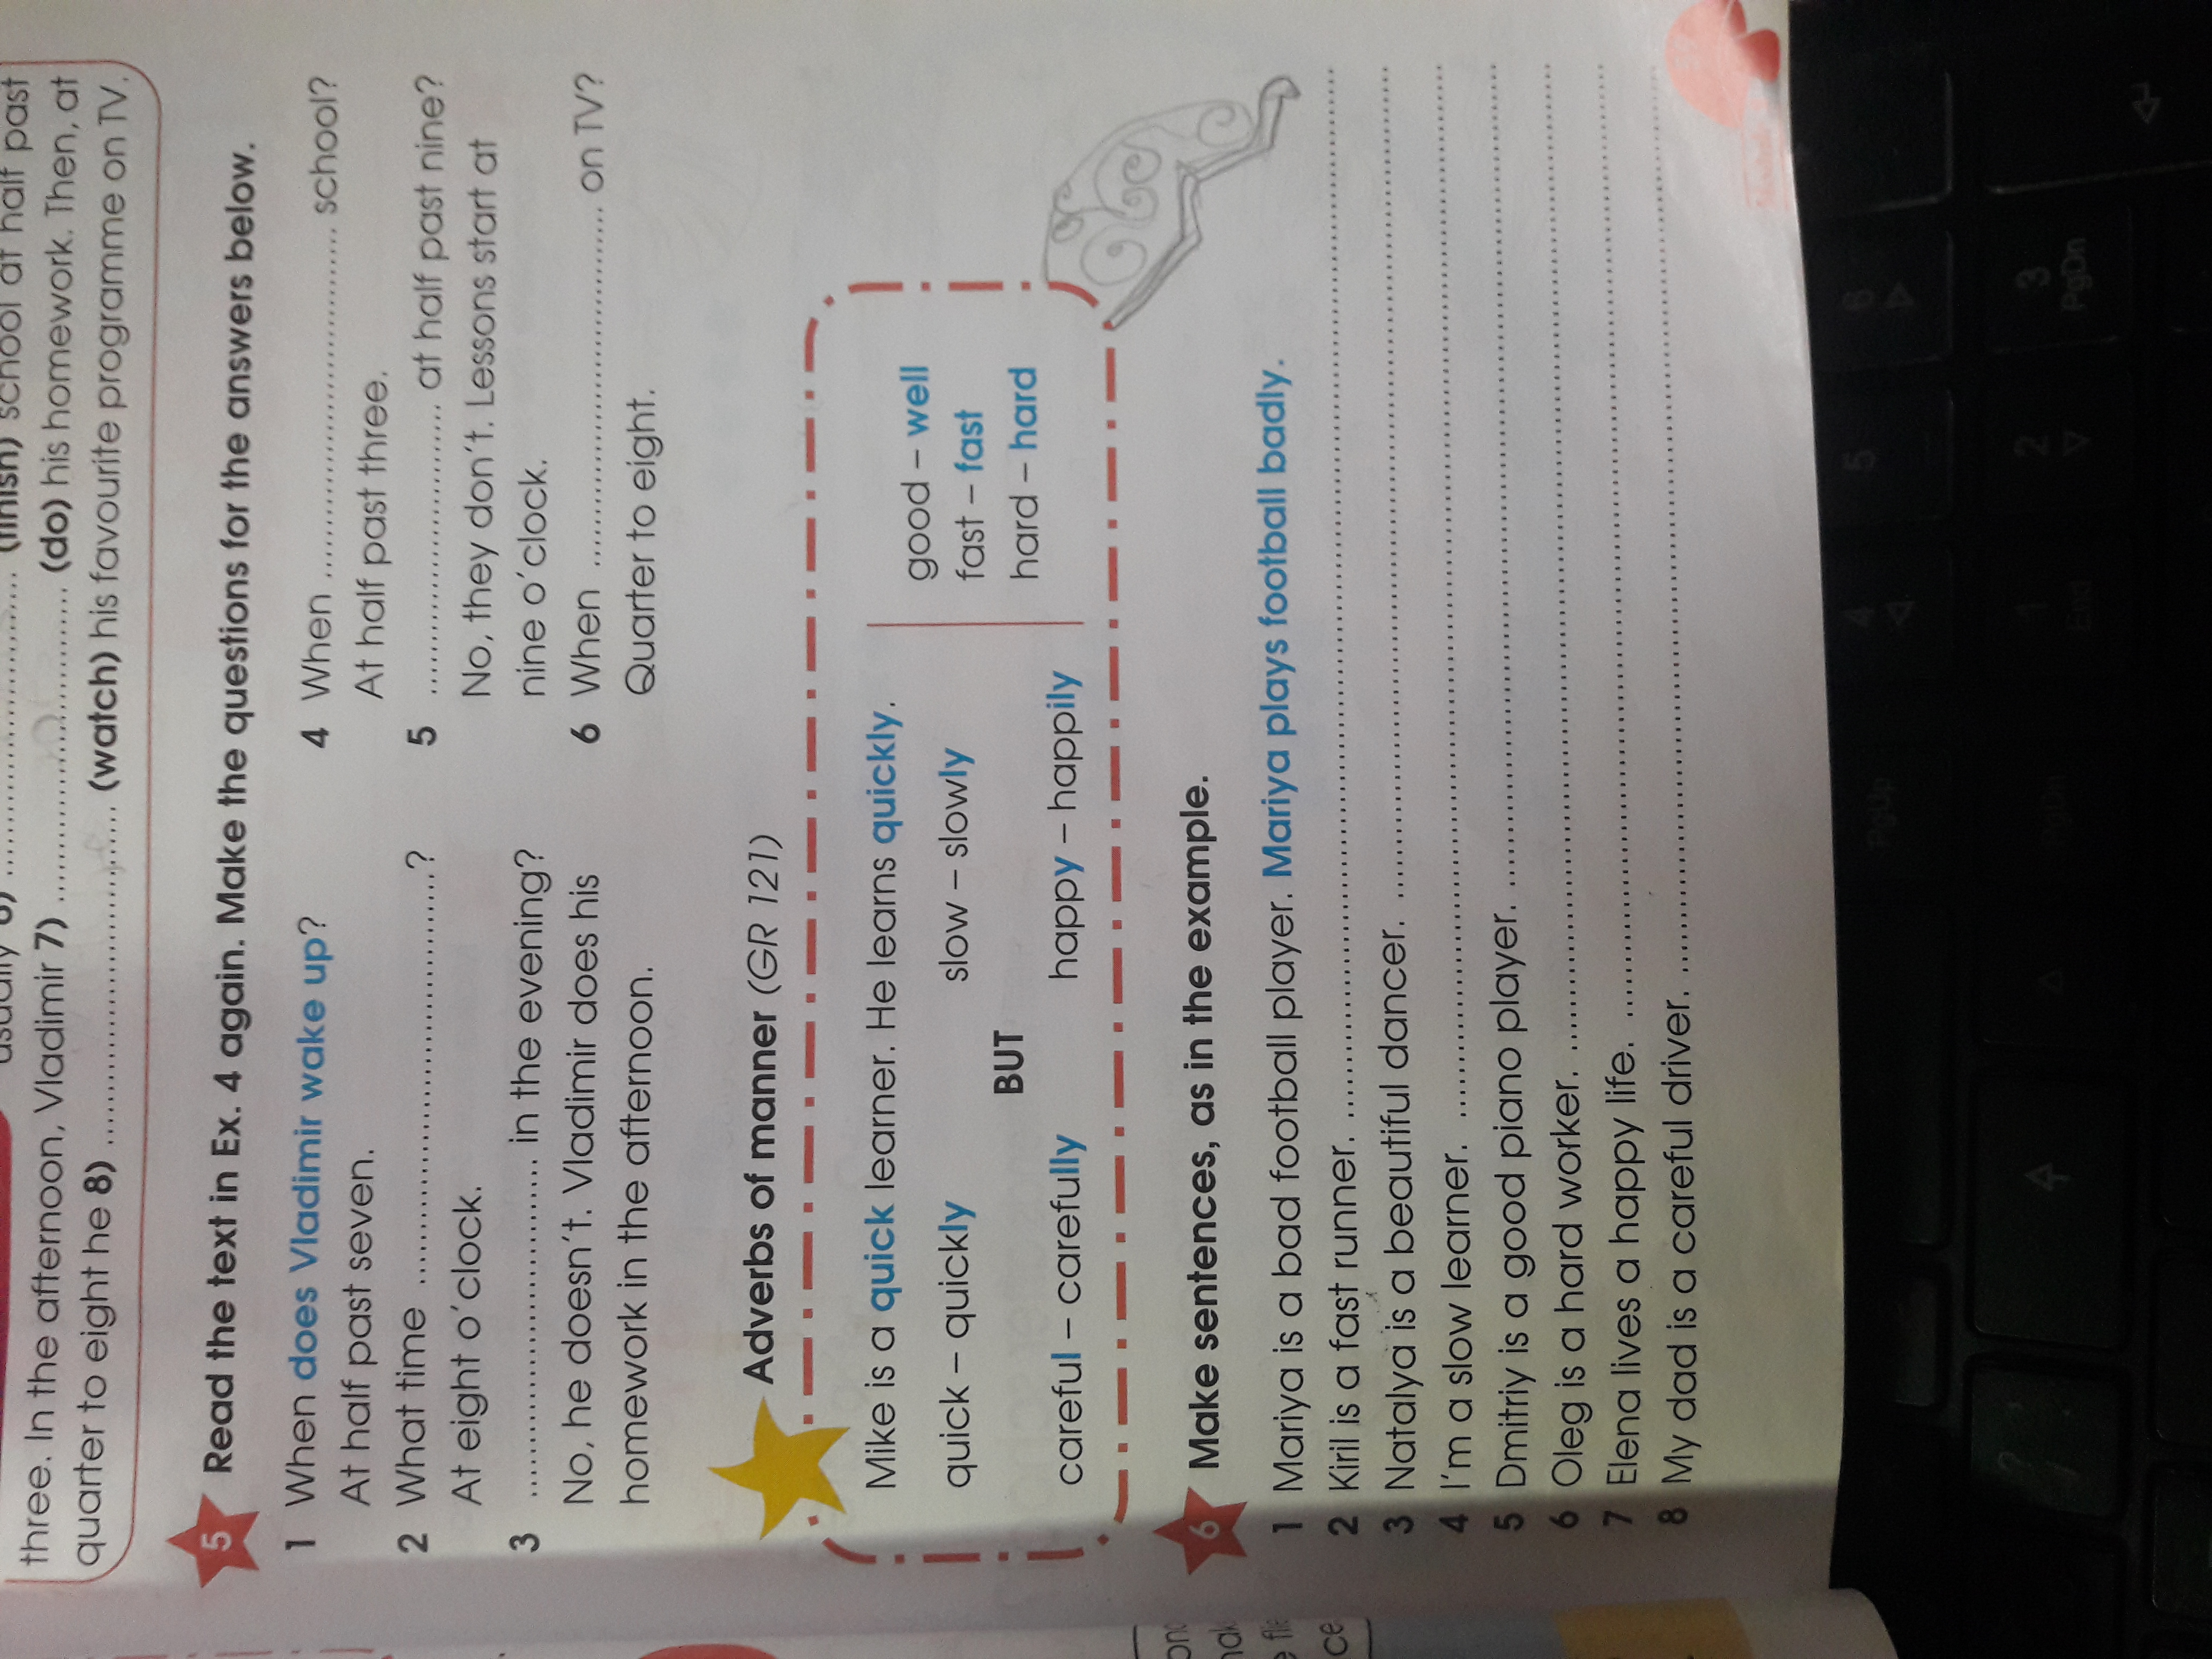 (finish) school at half past
three. In the afternoon, Vladimir 7) .................... (do) his homework. Then, at
quarter to eight he 8) .................... (watch) his favourite programme on TV.
5 Read the text in Ex. 4 again. Make the questions for the answers below.
1 When does Vladimir wake up?
At half past seven.
2 What time ....................?
At eight o'clock.
3 .................... in the evening?
No, he doesn't. Vladimir does his
homework in the afternoon.
4 When .................... school?
At half past three.
5 .................... at half past nine?
No, they don't. Lessons start at
nine o'clock.
6 When .................... on TV?
Quarter to eight.
Adverbs of manner (GR 121)
Mike is a quick learner. He learns quickly.
quick – quickly slow – slowly
BUT
careful – carefully happy – happily
good – well
fast – fast
hard – hard
6 Make sentences, as in the example.
1 Mariya is a bad football player. Mariya plays football badly.
2 Kiril is a fast runner. ....................
3 Natalya is a beautiful dancer. ....................
4 I'm a slow learner. ....................
5 Dmitriy is a good piano player. ....................
6 Oleg is a hard worker. ....................
7 Elena lives a happy life. ....................
8 My dad is a careful driver. ....................
PgUp
6
5
4
3
PgDn
2
1
End